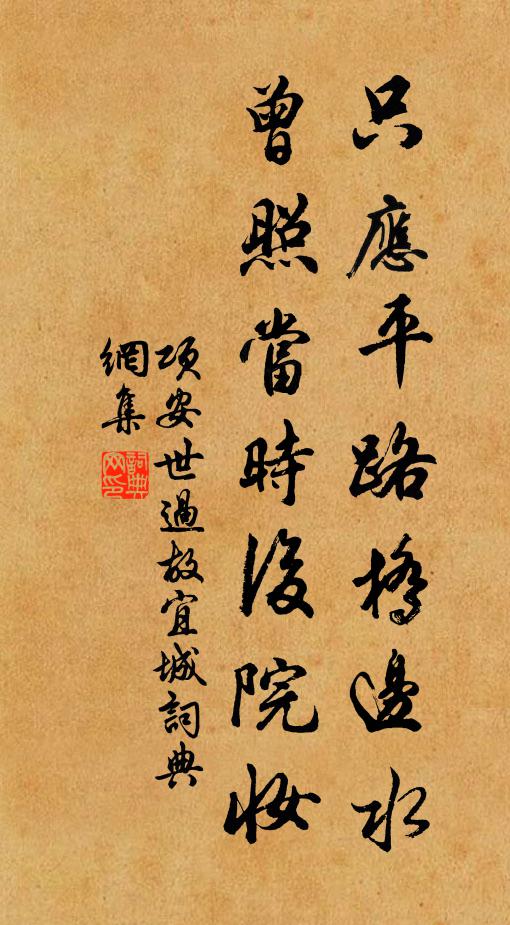 只應平路橋邊水
曾照當時後院妝
項安世過故宜城詞典
網集
詞典網印